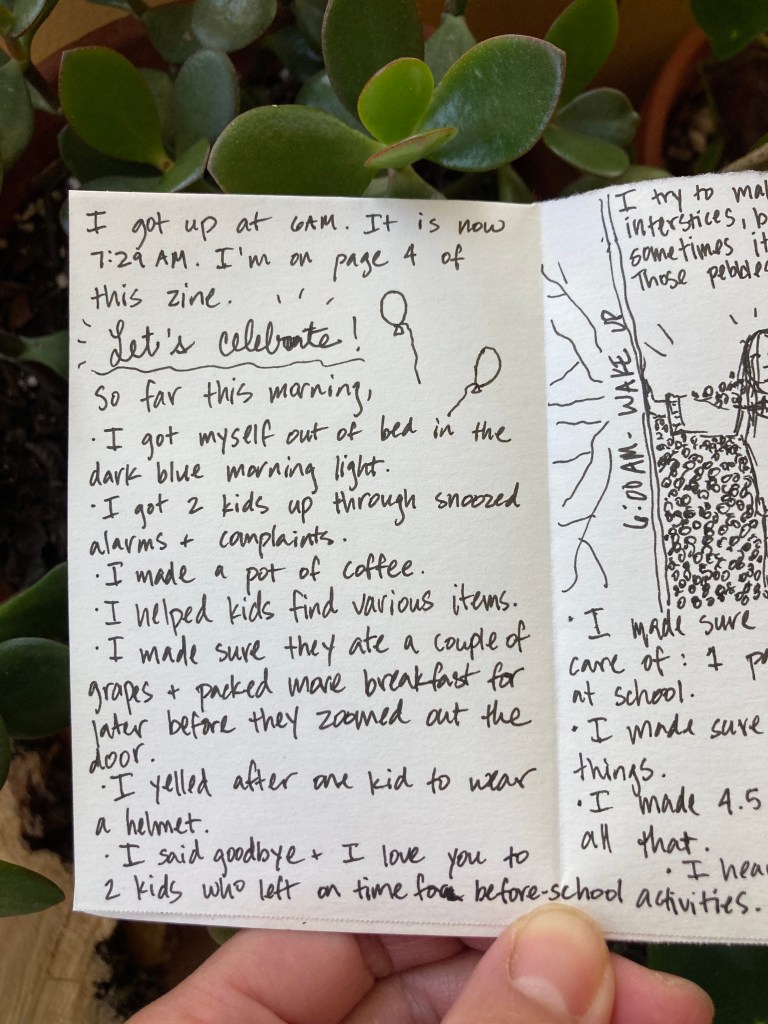 I got up at 6AM. It is now
7:29 AM. I'm on page 4 of
this zine.
Let's celebrate!
So far this morning,
· I got myself out of bed in the
dark blue morning light.
· I got 2 kids up through snoozed
alarms + complaints.
· I made a pot of coffee.
· I helped kids find various items.
· I made sure they ate a couple of
grapes + packed more breakfast for
later before they zoomed out the
door.
· I yelled after one kid to wear
a helmet.
· I said goodbye + I love you to
2 kids who left on time for before-school activities.
I try to
interstices,
sometimes
Those
6:00 AM - WAKE UP
· I made sure
care of: 1
at school.
· I made sure
things.
· I made 4.5
all that.
· I